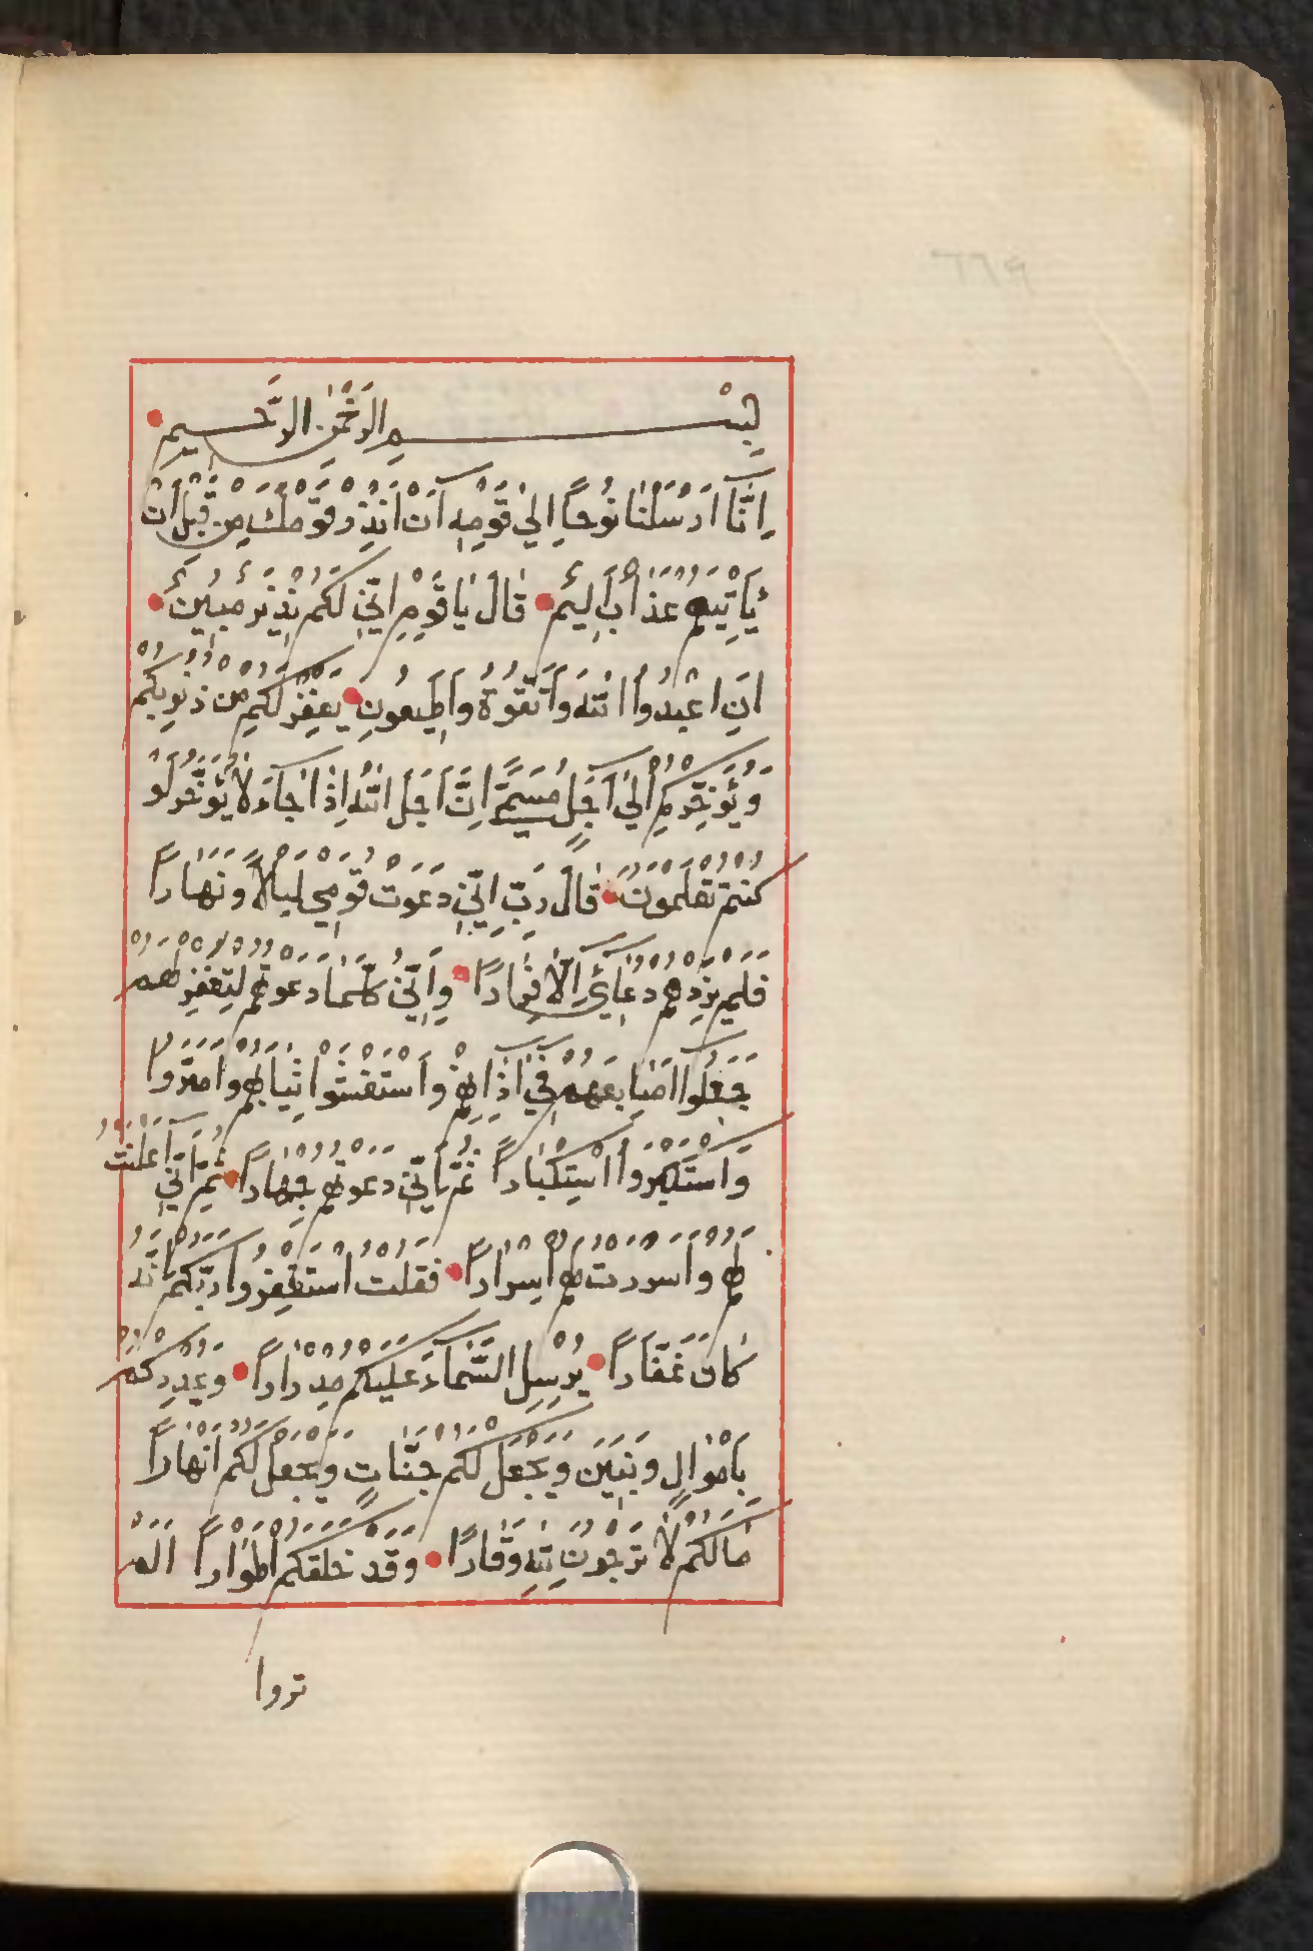 بِسْمِ الرَّحْمٰنِ الرَّحِيمِ
اِنَّآ اَرْسَلْنَا نُوحاً اِلٰي قَوْمِهِٓ اَنْ اَنْذِرْ قَوْمَكَ مِنْ قَبْلِ اَنْ
يَأْتِيَهُمْ عَذَابٌ اَلِيمٌ قَالَ يَا قَوْمِ اِنِّي لَكُمْ نَذِيرٌ مُبِينٌ
اَنِ اعْبُدُوا اللّٰهَ وَاتَّقُوهُ وَاَطِيعُونِ يَغْفِرْ لَكُمْ مِنْ ذُنُوبِكُمْ
وَيُؤَخِّرْكُمْ اِلٰٓي اَجَلٍ مُسَمًّي اِنَّ اَجَلَ اللّٰهِ اِذَا جَآءَ لَا يُؤَخَّرُ لَوْ
كُنْتُمْ تَعْلَمُونَ قَالَ رَبِّ اِنِّي دَعَوْتُ قَوْمِي لَيْلاً وَنَهَاراً
فَلَمْ يَزِدْهُمْ دُعَائِٓي اِلَّا فِرَاراً وَاِنِّي كُلَّمَا دَعَوْتُهُمْ لِتَغْفِرَ لَهُمْ
جَعَلُوٓا اَصَابِعَهُمْ فِٓي اٰذَانِهِمْ وَاسْتَغْشَوْا ثِيَابَهُمْ وَاَصَرُّوا
وَاسْتَكْبَرُوا اسْتِكْبَاراً ثُمَّ اِنِّي دَعَوْتُهُمْ جِهَاراً ثُمَّ اِنِّٓي اَعْلَنْتُ
لَهُمْ وَاَسْرَرْتُ لَهُمْ اِسْرَاراً فَقُلْتُ اسْتَغْفِرُوا رَبَّكُمْ اِنَّهُ
كَانَ غَفَّاراً يُرْسِلِ السَّمَآءَ عَلَيْكُمْ مِدْرَاراً وَيُمْدِدْكُمْ
بِاَمْوَالٍ وَبَنِينَ وَيَجْعَلْ لَكُمْ جَنَّاتٍ وَيَجْعَلْ لَكُمْ اَنْهَاراً
مَا لَكُمْ لَا تَرْجُونَ لِلّٰهِ وَقَاراً وَقَدْ خَلَقَكُمْ اَطْوَاراً اَلَمْ
تروا